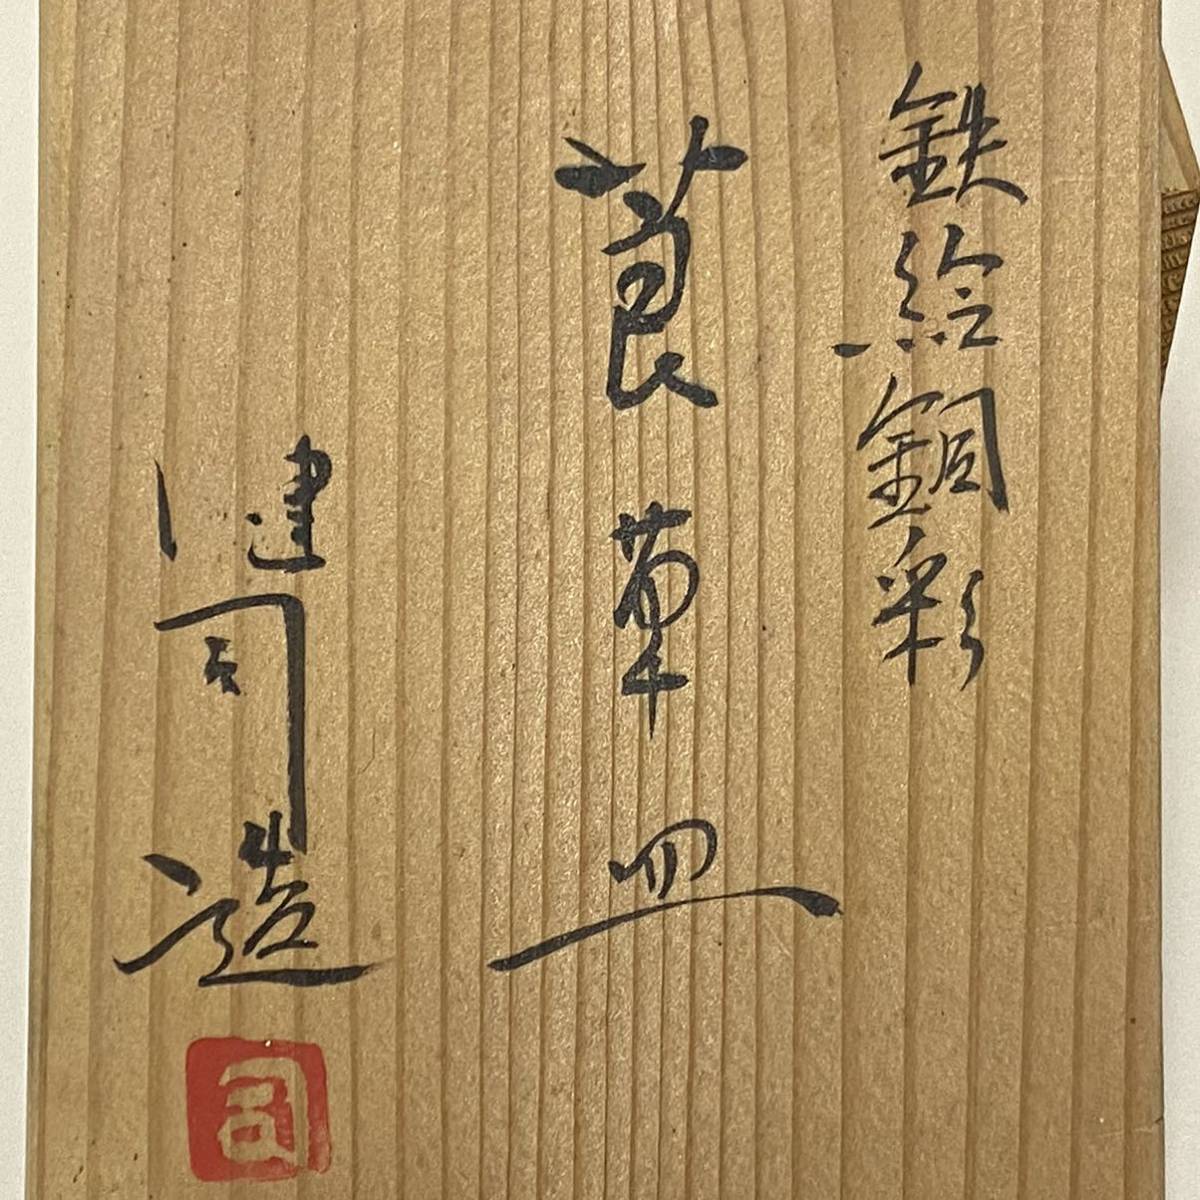 鉄絵銅彩
莨草皿
健司造
司